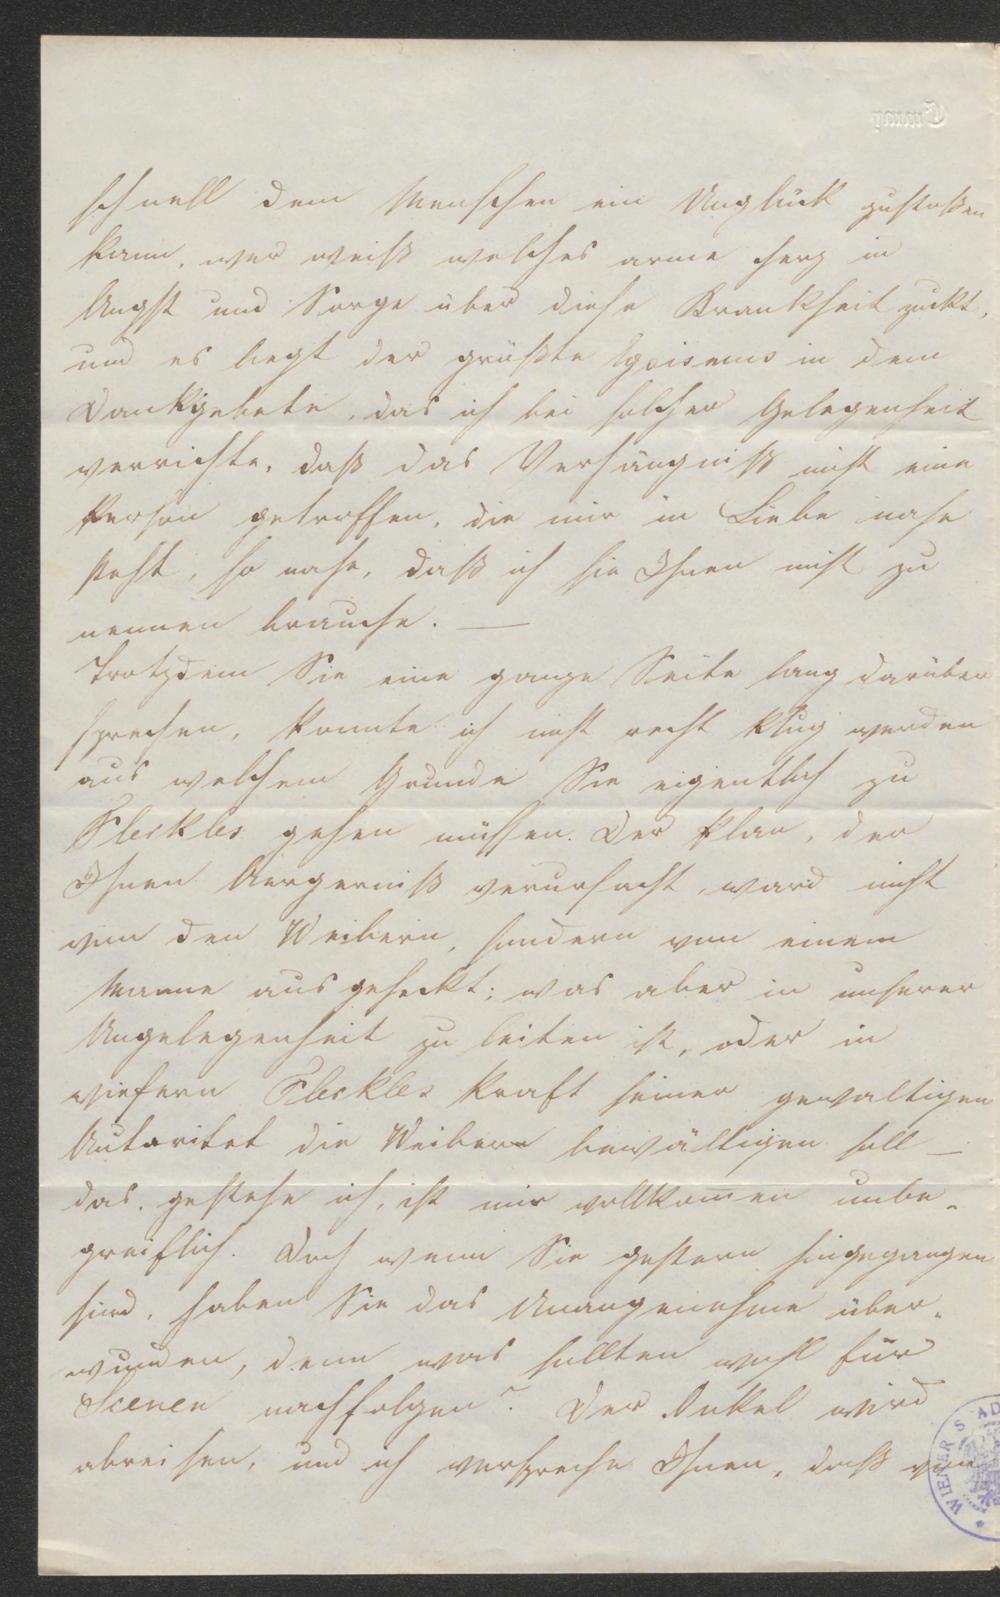 schnell dem Menschen ein Unglück zustoßen
kann, wer weiß welches arme Herz in
Angst und Sorge über diese Krankheit zuckt,
und es liegt der größte Egoismus in dem
Dankgebete, das ich bei solcher Gelegenheit
verrichte, daß das Verhängniß nicht eine
Person getroffen, die mir in Liebe nahe
steht, so nahe, daß ich sie Ihnen nicht zu
nennen brauche. —
Trotzdem Sie eine ganze Seite lang darüber
sprechen, konnte ich nicht recht klug werden
aus welchem Grunde Sie eigentlich zu
Fleckles gehen müssen. Der Plan, der
Ihnen Aergerniß verursacht, ward nicht
von den Weibern, sondern von einem
Manne ausgeheckt; was aber in unserer
Angelegenheit zu leiten ist, oder in
wiefern Fleckles kraft seiner gewaltigen
Autoritet die Weiber bewältigen soll —
das, gestehe ich, ist mir vollkom̄en unbe-
greiflich. Doch wenn Sie gestern hingegangen
sind, haben Sie das Unangenehme über-
wunden, denn was sollten wohl für
Scenen nachfolgen? Der Onkel wird
abreisen, und ich verspreche Ihnen, daß von
WIENER STAD